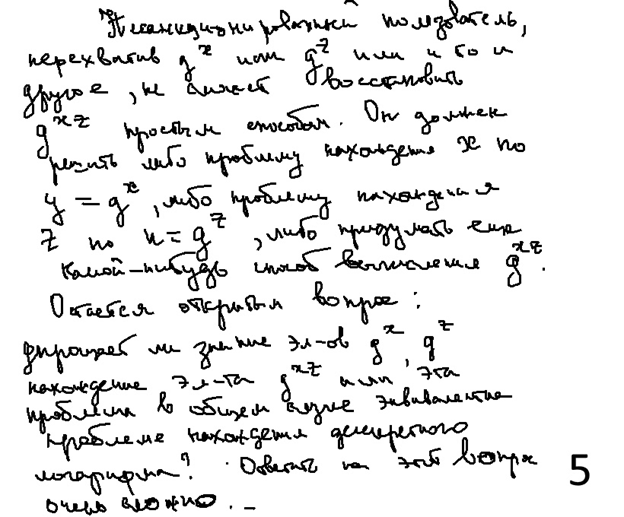 Несанкционированный пользователь,
перехватив g^x или g^z или и то и
другое, не сможет восстановить
g^{xz} простым способом. Он должен
решить либо проблему нахождения x по
y = g^x, либо проблему нахождения
z по u = g^z, либо придумать еще
какой-нибудь способ вычисления g^{xz}.
Остается открытым вопрос:
упрощает ли знание эл-ов g^x, g^z
нахождение эл-та g^{xz} или эта
проблема в общем случае эквивалентна
проблеме нахождения дискретного
логарифма? Ответить на этот вопрос 5
очень сложно. _